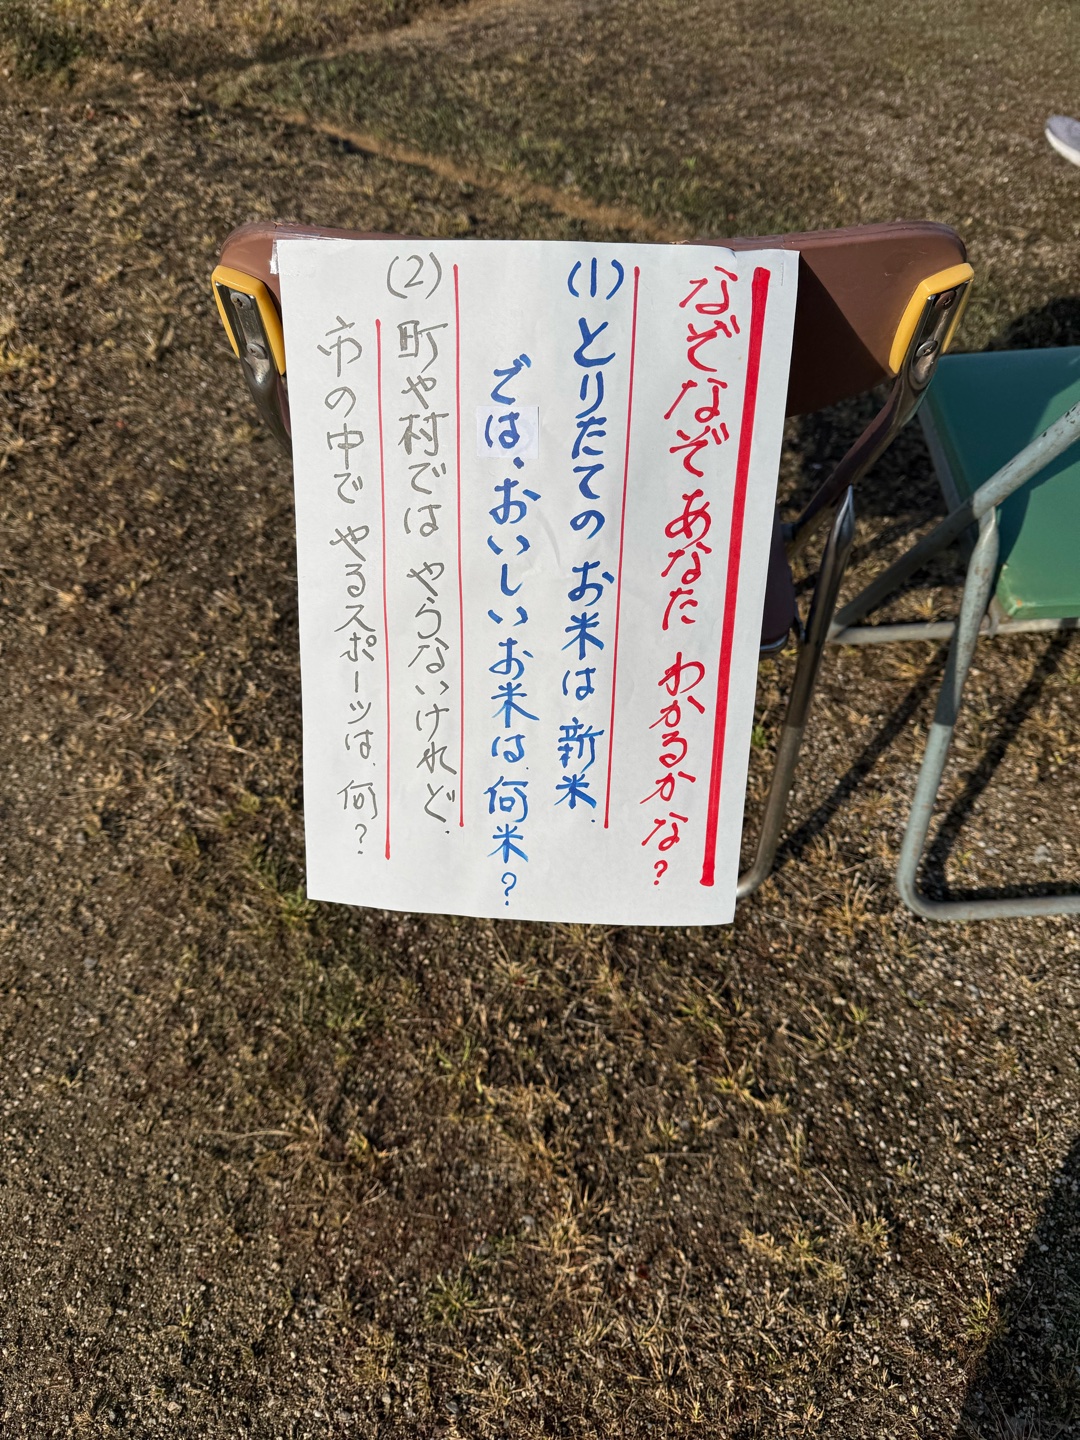 なぞなぞあなた わかるかな?
(1)とりたての お米は 新米.
では、おいしいお米は、何米?
(2)町や村では やらないけれど、
市の中で やるスポーツは、何?